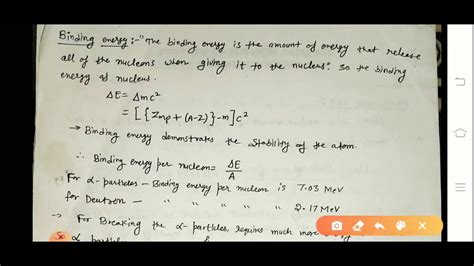 Binding energy :- "The binding energy is the amount of energy that release
all of the nucleons when giving it to the nucleus". So the binding
energy of nucleus.
ΔE = Δmc²
= [{Zmp + (A-Z)} - m]c²
→ Binding energy demonstrates the stability of the atom
∴ Binding energy per nucleon = ΔE/A
For α-particles - Binding energy per nucleon is 7.03 MeV
for Deutron - " " " " " 2.17 MeV
→ For Breaking the α-particles, requires much more
So